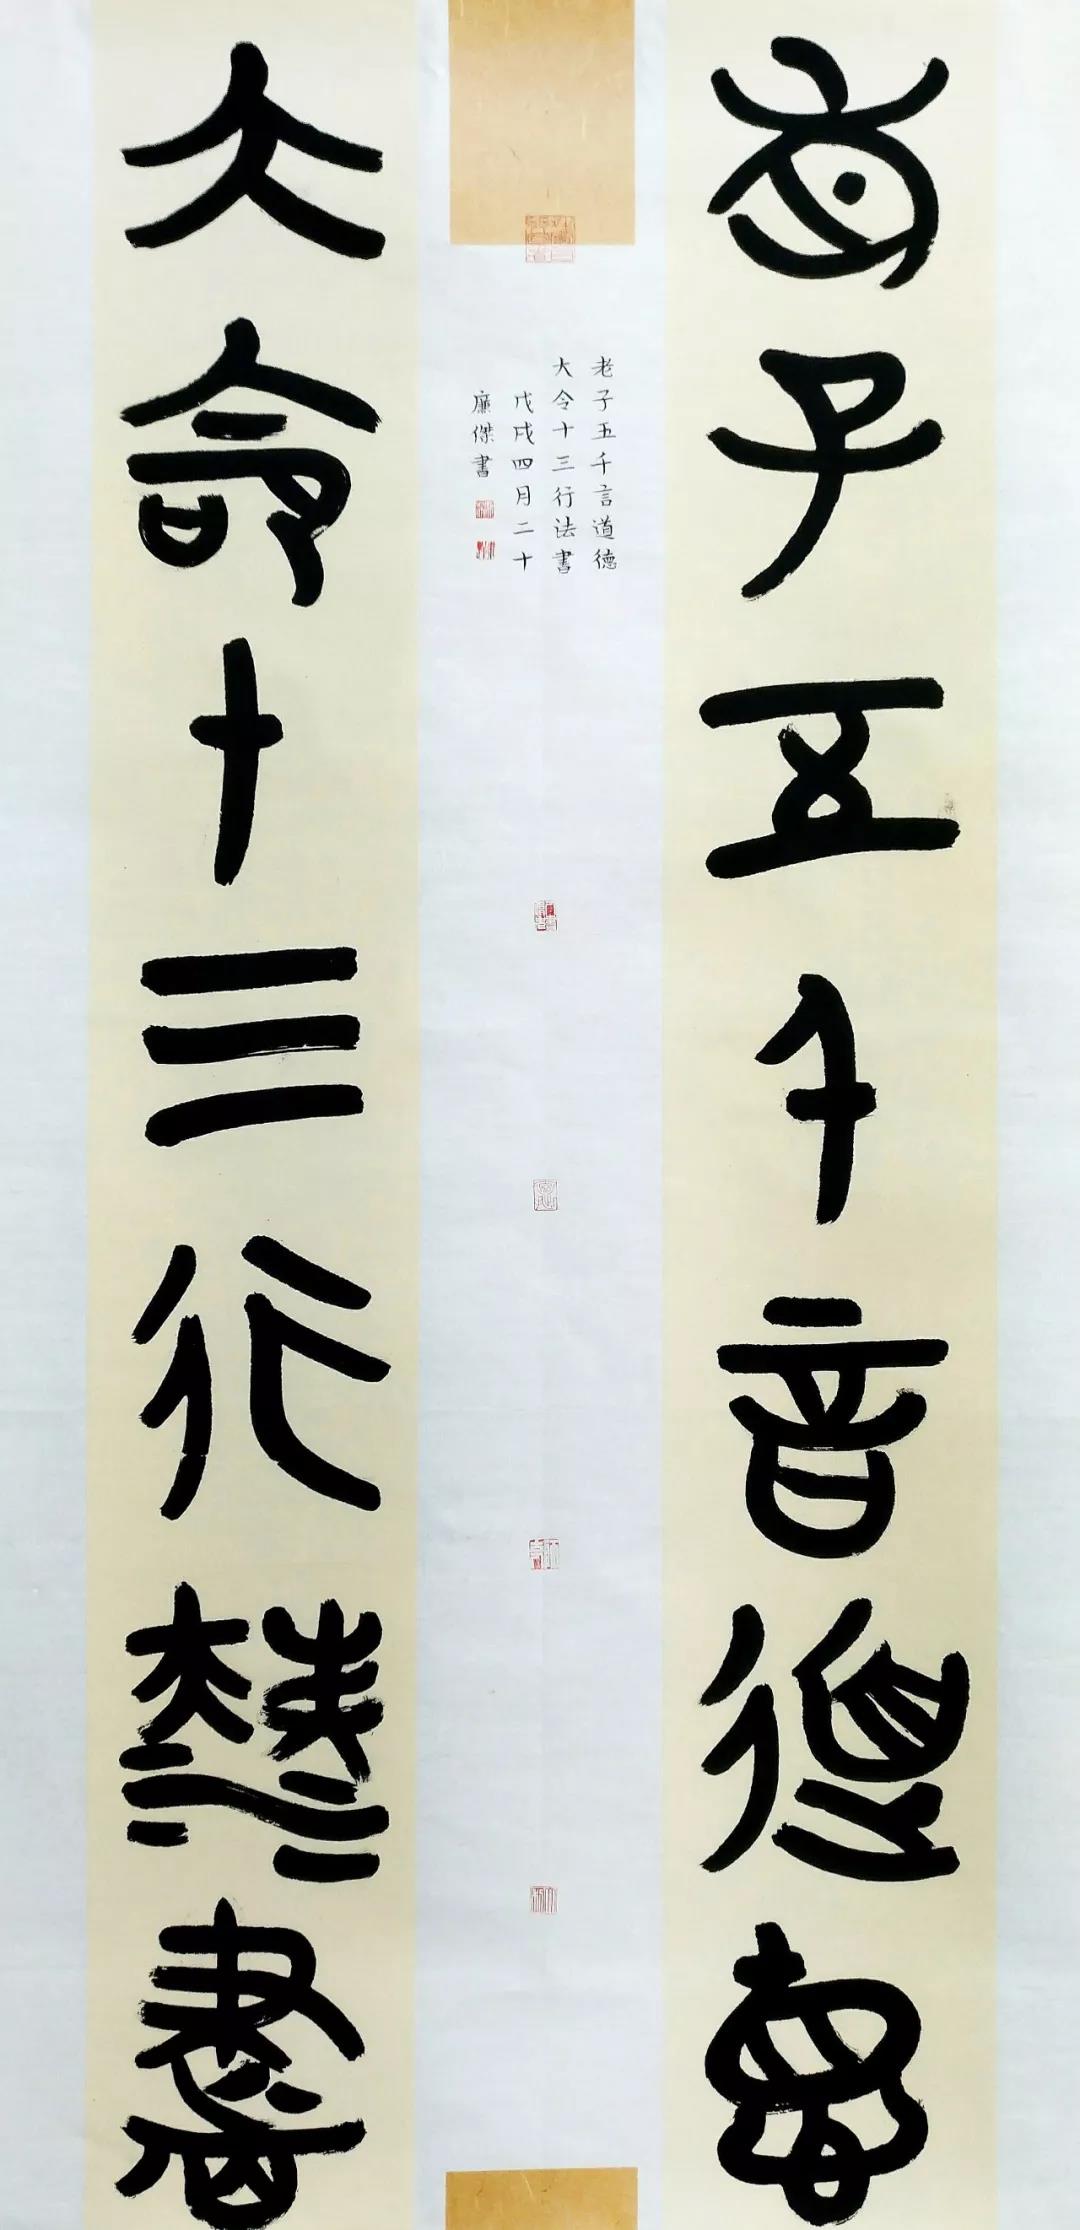 老子五千言道德
大令十三行法書
老子五千言道德
大令十三行法書
戊戌四月二十
廉傑書